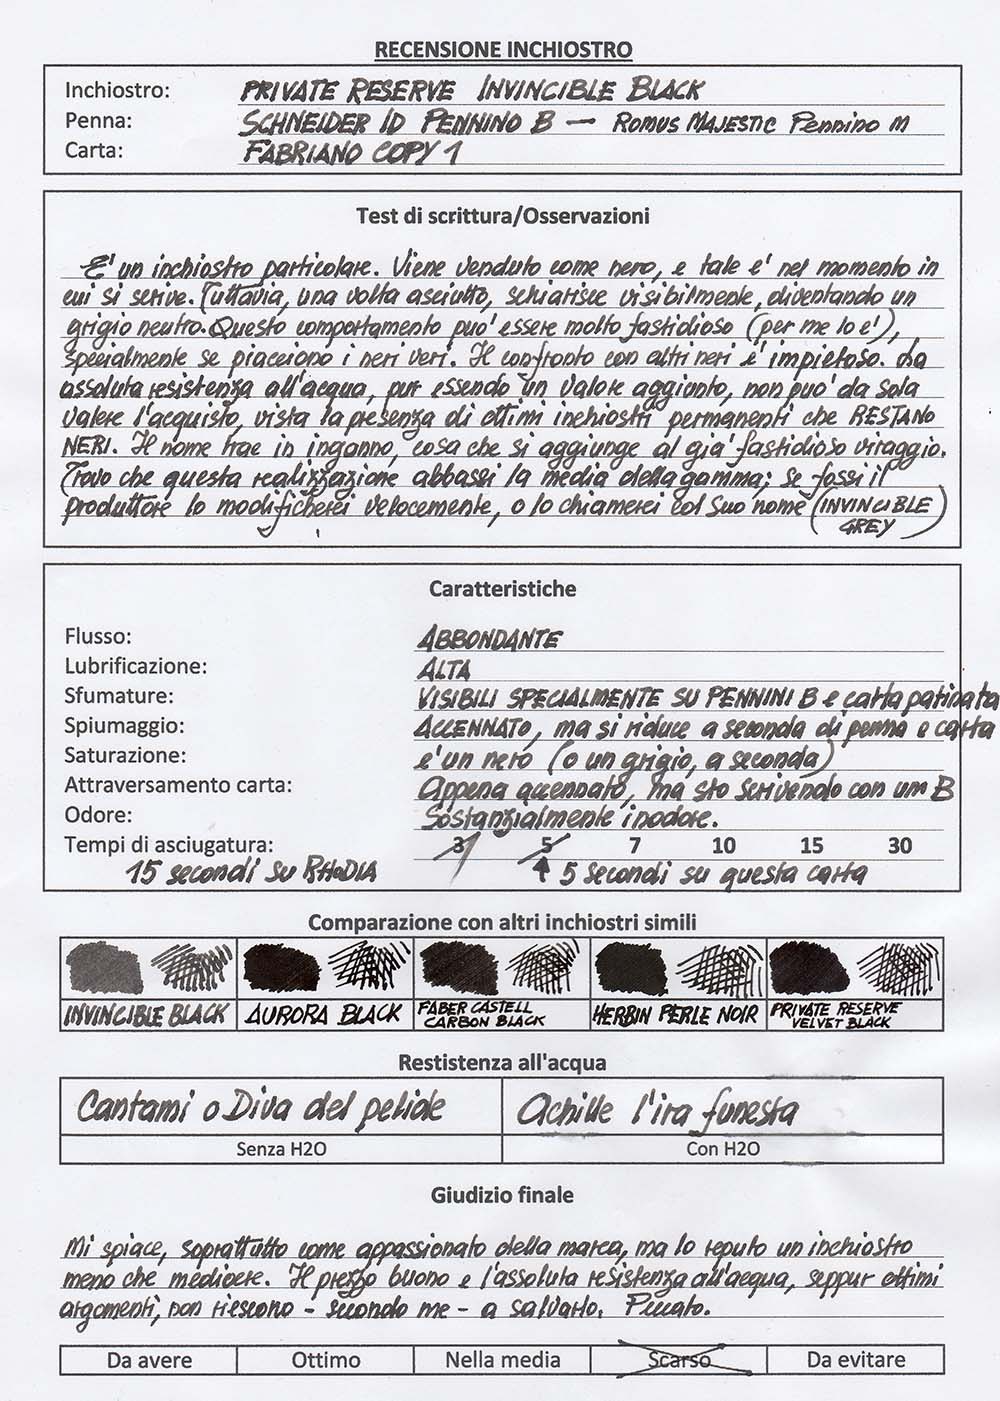 RECENSIONE INCHIOSTRO
Inchiostro: PRIVATE RESERVE INVINCIBLE BLACK
Penna: SCHNEIDER ID PENNINO B — ROMUS MAJESTIC Pennino M
Carta: FABRIANO COPY 1
Test di scrittura/Osservazioni
E' un inchiostro particolare. Viene venduto come nero, e tale e' nel momento in
cui si scrive. Tuttavia, una volta asciutto, schiarisce visibilmente, diventando un
grigio neutro. Questo comportamento puo' essere molto fastidioso (per me lo e'),
specialmente se piacciono i neri veri. Il confronto con altri neri e' impietoso. La
assoluta resistenza all'acqua, pur essendo un valore aggiunto, non puo' da sola
valere l'acquisto, vista la presenza di ottimi inchiostri permanenti che RESTANO
NERI. Il nome trae in inganno, cosa che si aggiunge al gia' fastidioso viraggio.
Trovo che questa realizzazione abbassi la media della gamma; se fossi il
produttore lo modificherei velocemente, o lo chiamerei col suo nome (INVINCIBLE
GREY)
Caratteristiche
Flusso: ABBONDANTE
Lubrificazione: ALTA
Sfumature: VISIBILI SPECIALMENTE SU PENNINI B e carta patinata
Spiumaggio: ACCENNATO, ma si riduce a seconda di penna e carta
Saturazione: e' un nero (o un grigio, a seconda)
Attraversamento carta: Appena accennato, ma sto scrivendo con un B
Odore: Sostanzialmente inodore.
Tempi di asciugatura: 3 5 7 10 15 30
15 secondi su RHODIA 5 secondi su questa carta
Comparazione con altri inchiostri simili
INVINCIBLE BLACK AURORA BLACK FABER CASTELL CARBON BLACK HERBIN PERLE NOIR PRIVATE RESERVE VELVET BLACK
Restistenza all'acqua
Cantami o Diva del pelide Achille l'ira funesta
Senza H2O Con H2O
Giudizio finale
Mi spiace, soprattutto come appassionato della marca, ma lo reputo un inchiostro
meno che mediocre. Il prezzo buono e l'assoluta resistenza all'acqua, seppur ottimi
argomenti, non riescono - secondo me - a salvarlo. Peccato.
Da avere Ottimo Nella media Scarso Da evitare